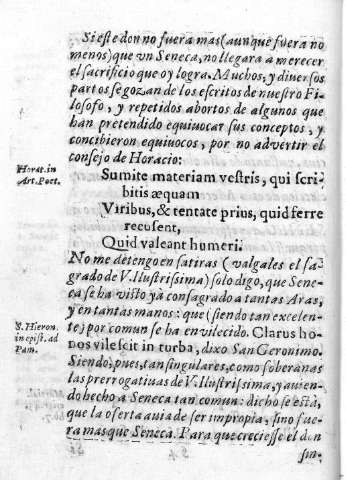 Si este don no fuera mas (aunque fuera no
menos) que vn Seneca, no llegara a merecer
el sacrificio que oy logra. Muchos, y diuersos
partos se gozan de los escritos de nuestro Fi-
losofo, y repetidos abortos de algunos que
han pretendido equiuocar sus conceptos, y
concibieron equiuocos, por no advertir el
consejo de Horacio:
Horat. in
Art. Poet.
Sumite materiam vestris, qui scri-
bitis æquam
Viribus, & tentate prius, quid ferre
recusent,
Quid valeant humeri.
No me detengo en satiras (valgales el sa-
grado de V. Ilustrissima) solo digo, que Sene-
ca se ha visto yà consagrado a tantas Aras,
y en tantas manos: que (siendo tan excelen-
te) por comun se ha envilecido. Clarus ho-
S. Hieron.
in epist. ad
Pam.
nos vilescit in turba, dixo San Geronimo.
Siendo, pues, tan singulares, como soberanas
las prerrogatiuas de V. Ilustrissima, y auien-
do hecho a Seneca tan comun: dicho se està,
que la oferta auia de ser impropia, sino fue-
ra mas que Seneca. Para que creciesse el don
sin-